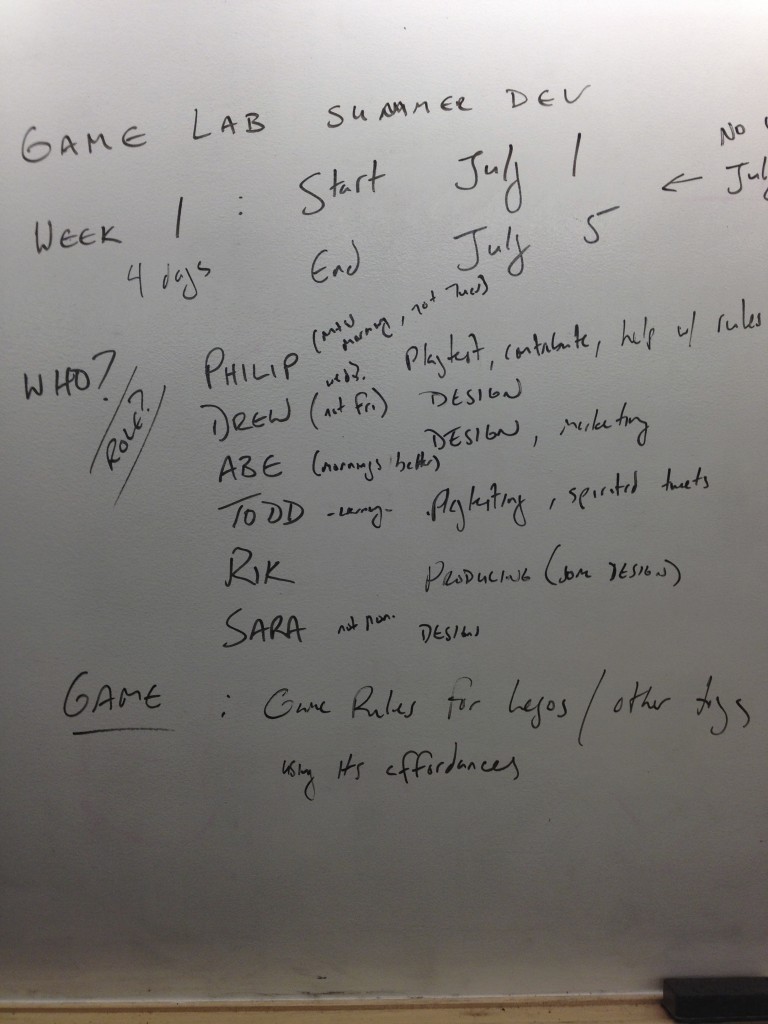 GAME LAB SUMMER DEV
No
WEEK 1 : Start July 1
← Jul
4 days End July 5
WHO? / ROLE? /
PHILIP (mtu morning, not Tues) Playtest, contribute, help w/ rules
weds?
DREW (not Fri) DESIGN
ABE (mornings better) DESIGN, marketing
TODD Playtesting, spirited tweets
RIK PRODUCING (some DESIGN)
SARA not mon. DESIGN
GAME : Game Rules for Legos / other toys
using its affordances